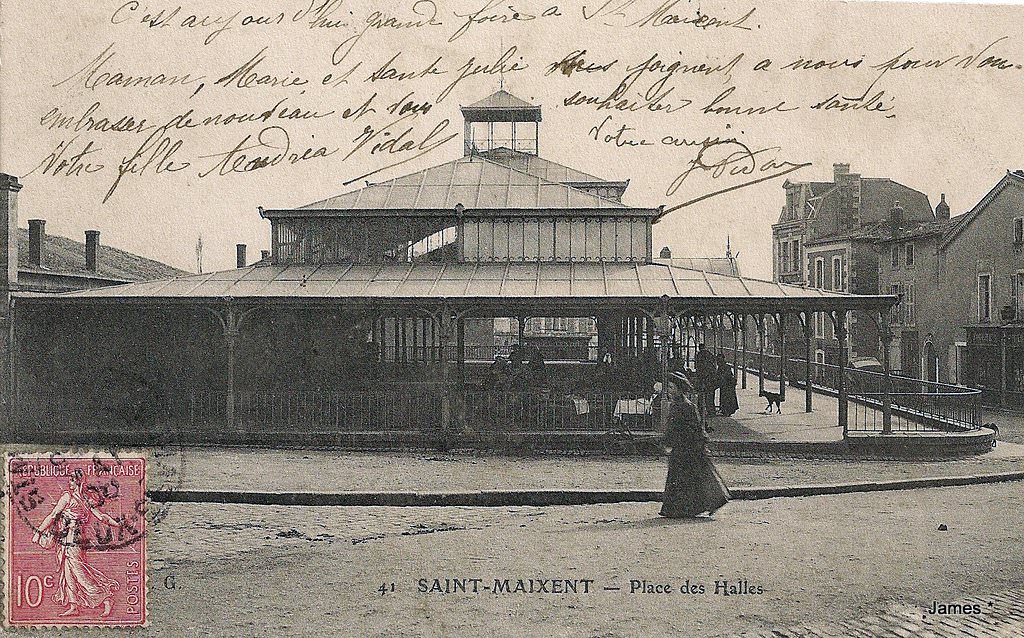 C'est aujourd'hui grande foire à St Maixent.
Maman, Marie et tante Julie se joignent, à nous pour vous
embrasser de nouveau et vous souhaiter bonne santé.
Votre fille Andréa Vidal
Votre
J. Vidal
REPUBLIQUE FRANÇAISE
10c
POSTES
G.
41 SAINT-MAIXENT — Place des Halles
James *